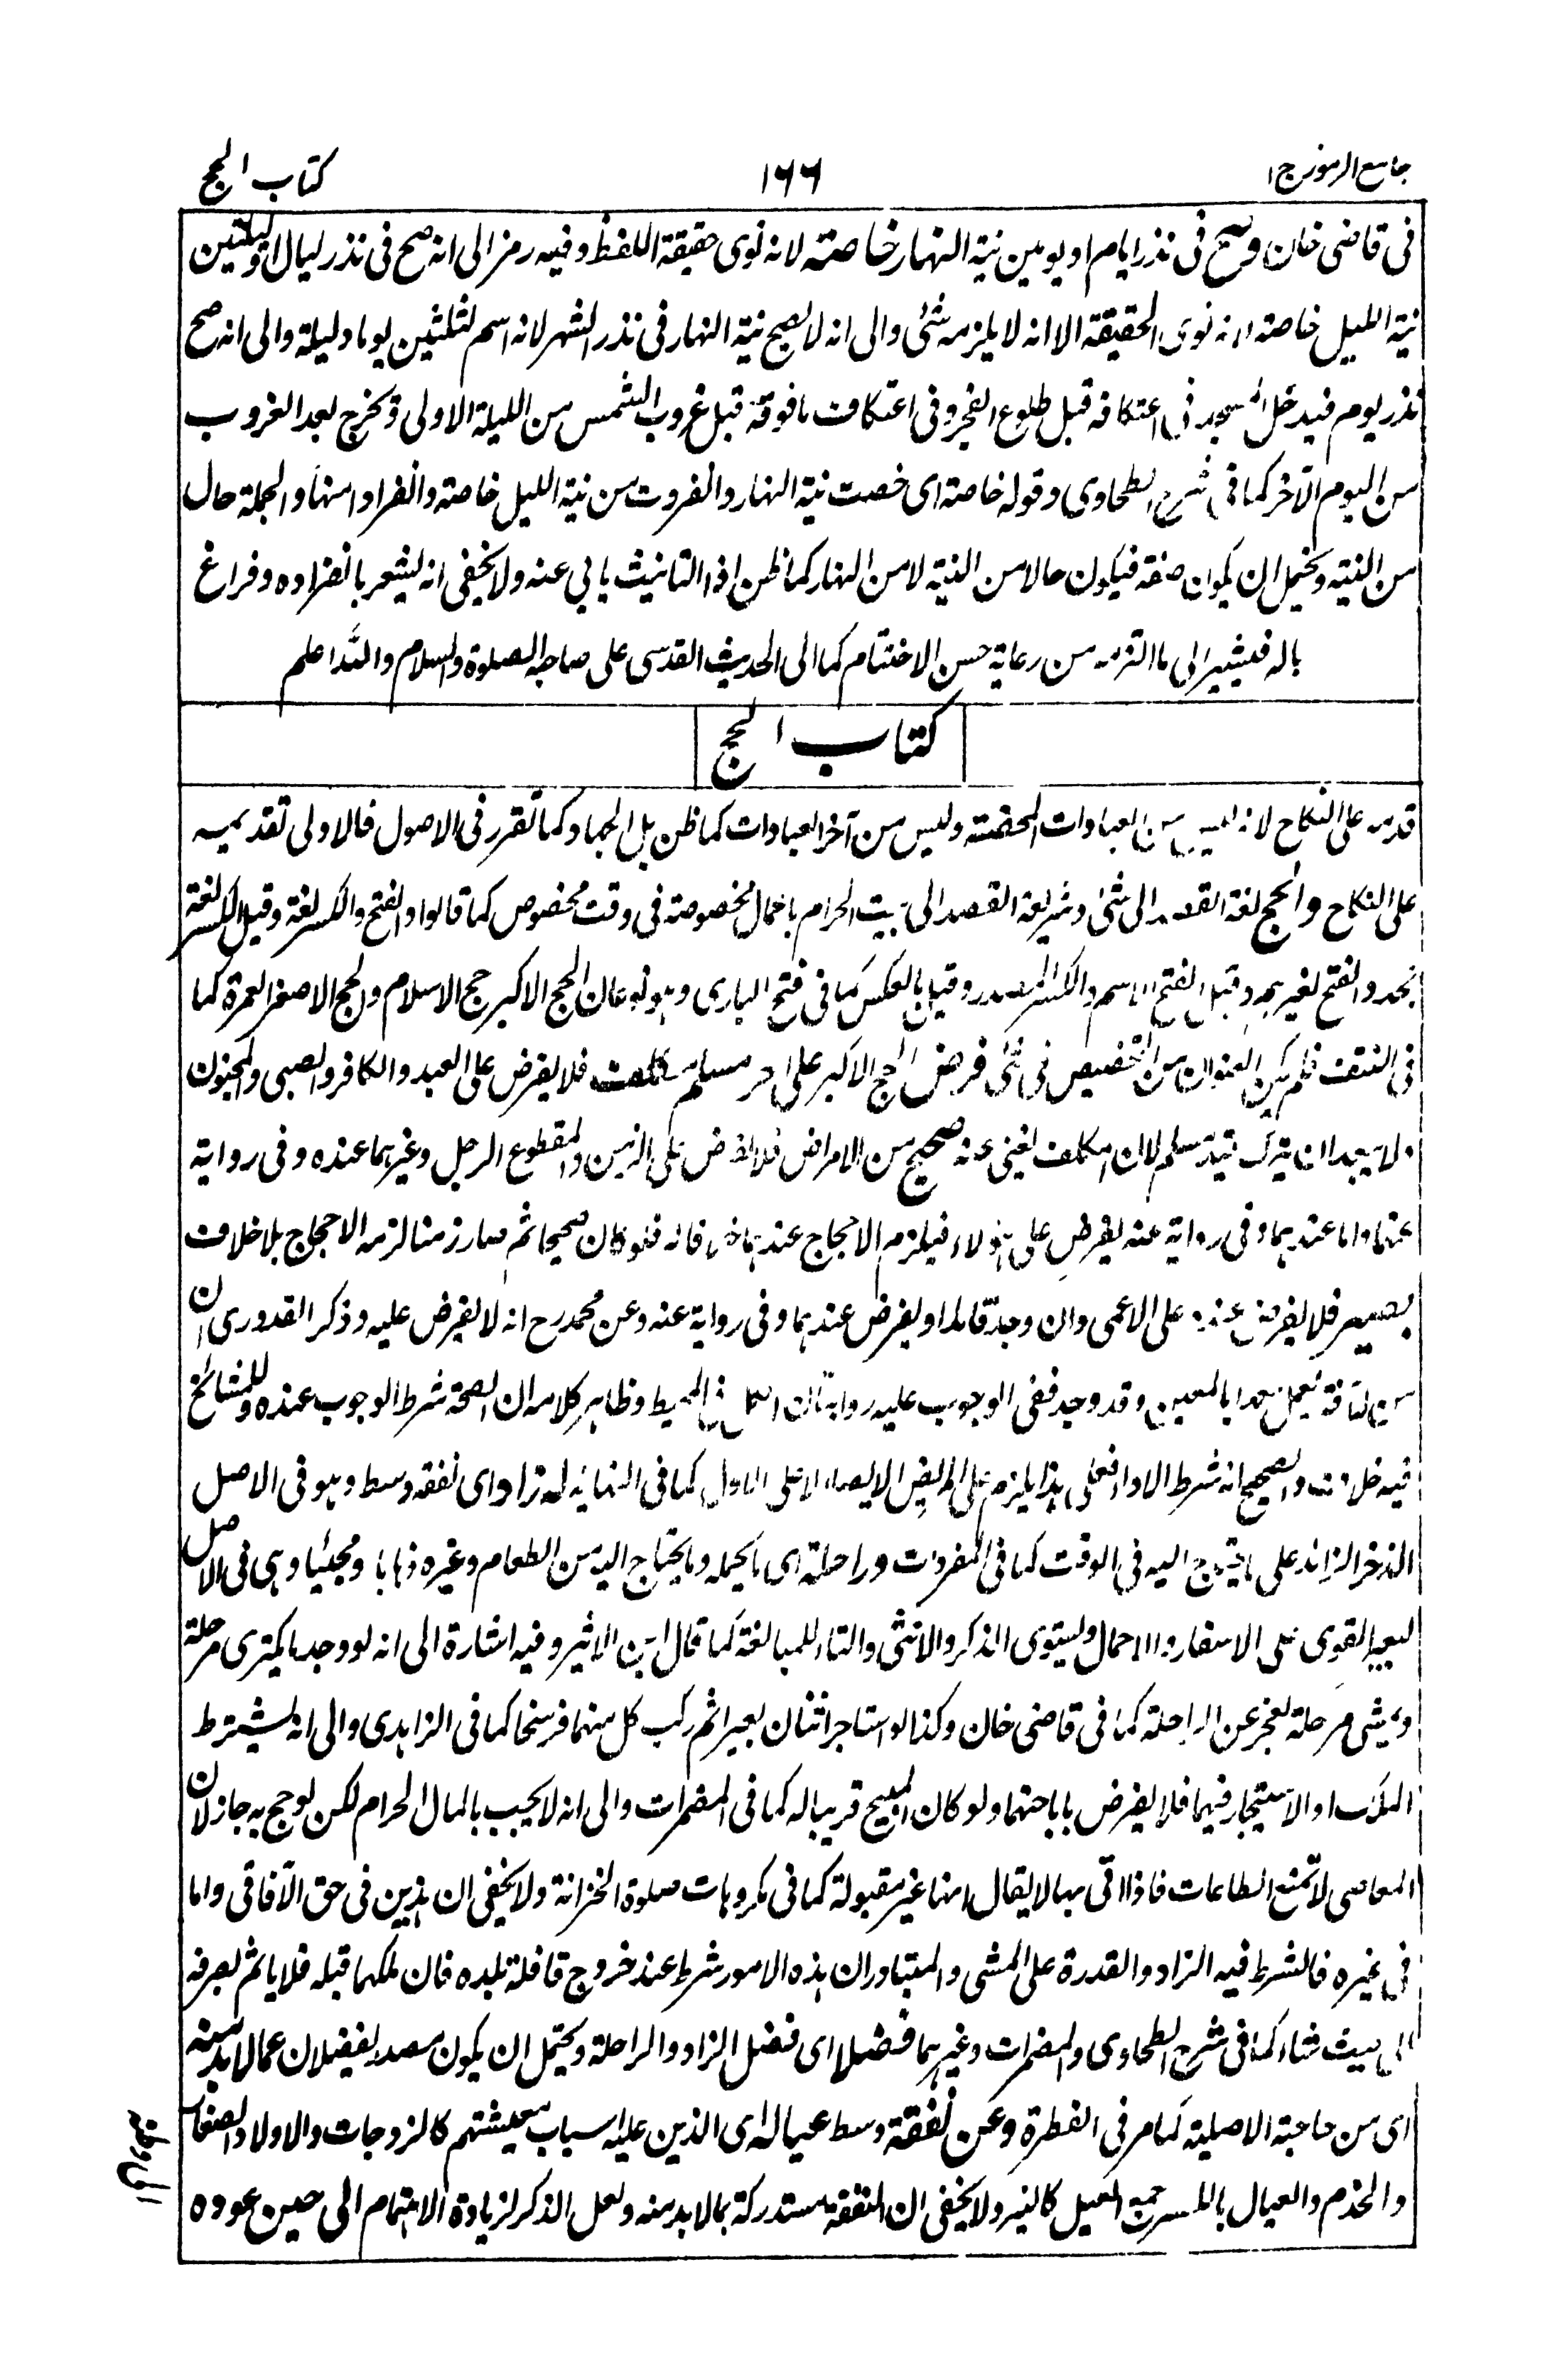 جامع الرموز ج ١
١٦٦
كتاب الحج
فى قاضى خان وصح فى نذر ايام او يومين نية النهار خاصة لانه نوى حقيقة اللفظ وفيه رمز الى انه صح فى نذر ليال او ليلتين
نية الليل خاصة لانه نوى الحقيقة الا انه لا يلزمه شئ والى انه لا يصح نية النهار فى نذر الشهر لانه اسم لثلثين يوما وليلة والى انه صح
نذر يوم فيدخل المسجد فى اعتكافه قبل طلوع الفجر وفى اعتكاف ما فوقه قبل غروب الشمس من الليلة الاولى ويخرج بعد الغروب
من اليوم الآخر كما فى شرح الطحاوى وقوله خاصة اى خصت نية النهار وانفردت من نية الليل خاصة وانفرادا منها والجملة حال
من النية ويحتمل ان يكون صفة فيكون حالا من النية لا من النهار كما ظن اذ التانيث يابى عنه ولا يخفى انه يشعر بانفراده وفراغ
باله فيشير الى ما التزمه من رعاية حسن الاختتام كما الى الحديث القدسى على صاحبه الصلوة والسلام والله اعلم
كتاب الحج
قدمه على النكاح لانه ليس من العبادات المحضة وليس من آخر العبادات كما ظن بل الجهاد كما تقرر فى الاصول فالاولى تقديمه
على النكاح والحج لغة القصد الى شئ وشريعة القصد الى بيت الحرام باعمال مخصوصة فى وقت مخصوص كما قالوا والفتح والكسر لغة وقيل الكسر لغة
نجد والفتح لغيرهم وقيل الفتح الاسم والكسر المصدر وقيل بالعكس كما فى فتح البارى وهو نوعان الحج الاكبر حج الاسلام والحج الاصغر العمرة كما
فى النتف فلم يكن العنوان من التخصيص فى شئ فرض الحج الاكبر على حر مسلم مكلف فلا يفرض على العبد والكافر والصبى والمجنون
ولا يبعد ان يترك قيد مسلم لان المكلف يغنى عنه صحيح من الامراض فلا يفرض على الزمن والمقطوع الرجل وغيرهما عنده وفى رواية
عنهما واما عندهما وفى رواية عنه يفرض على هؤلاء فيلزم الاحجاج عندهما خلافا له فلو كان صحيحا ثم صار زمنا لزمه الاحجاج بلا خلاف
بصير فلا يفرض عنده على الاعمى وان وجد قائدا ويفرض عندهما وفى رواية عنه وعن محمد رح انه لا يفرض عليه وذكر القدورى ان
بالمعين وقد وجد ففى الوجوب عليه روايتان المحيط وظاهر كلامه ان الصحة شرط الوجوب عنده وللمشائخ
فيه خلاف والصحيح انه شرط الاداء فعلى هذا يلزم على المريض الايصاء لا على الاول كما فى النهاية له زاد اى نفقة وسط وهو فى الاصل
الذخر الزائد على ما يحتاج اليه فى الوقت كما فى المفردات وراحلة اى ما يحمله وما يحتاج اليه من الطعام وغيره ذهابا ومجيئا وهى فى الاصل
البعير القوى على الاسفار والاحمال ويستوى الذكر والانثى والتاء للمبالغة كما قال ابن الاثير وفيه اشارة الى انه لو وجد ما يكترى مرحلة
ويمشى مرحلة لعجز عن الراحلة كما فى قاضى خان وكذا لو استاجر اثنان بعيرا ثم ركب كل منهما فرسخا كما فى الزاهدى والى انه يشترط
الملك او الاستيجار فيهما فلا يفرض باباحتهما ولو كان المبيح قريبا له كما فى المضمرات والى انه لا يجب بالمال الحرام لكن لو حج به جاز لان
المعاصى لا تمنع الطاعات فاذا اتى بها لا يقال انها غير مقبولة كما فى مكروهات صلوة الخزانة ولا يخفى ان هذين فى حق الآفاقى واما
فى غيره فالشرط فيه الزاد والقدرة على المشى والمتبادر ان هذه الامور شرط عند خروج قافلة بلده فان ملكها قبله فلا ياثم بصرفه
الى حيث شاء كما فى شرح الطحاوى والمضمرات وغيرهما فضلا اى فضل الزاد والراحلة ويحتمل ان يكون مصدر يفضلان عما لا بد منه
اى من حاجته الاصلية كما مر فى الفطرة وعن نفقة وسط عياله اى الذين عليه اسباب معيشتهم كالزوجات والاولاد الصغار
والخدم والعيال بالكسر جمع العيل كالنير ولا يخفى ان النفقة مستدركة بما لا بد منه ولعل الذكر لزيادة الاهتمام الى حين عوده